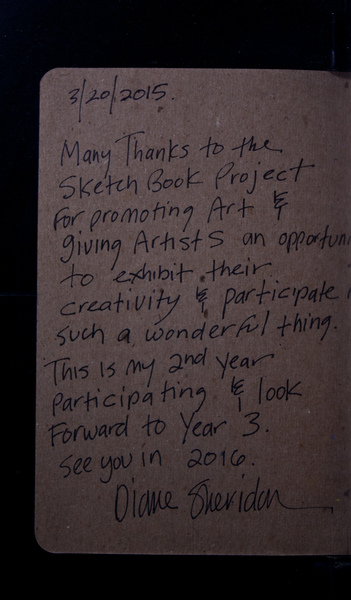 3/20/2015.
Many Thanks to the
Sketch Book Project
for promoting Art &
giving Artists an opportun
to exhibit their
creativity & participate i
such a wonderful thing.
This is my 2nd year
participating & look
Forward to Year 3.
See you in 2016.
Diane Sheridan